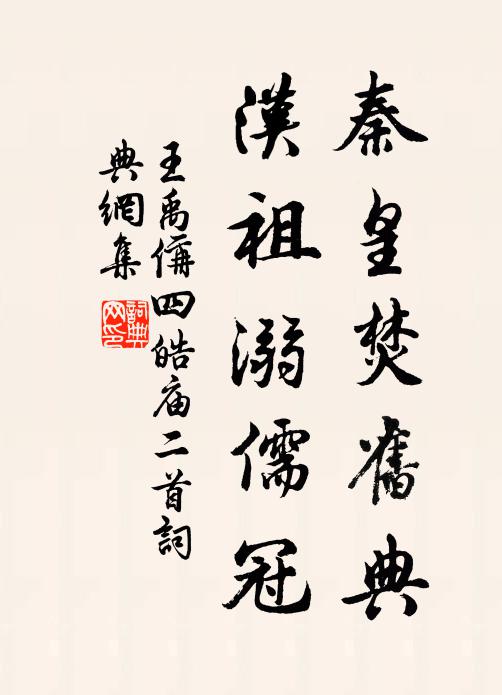 秦皇焚舊典
漢祖溺儒冠
王禹偁四皓庙二首詞
典網集
詞典
网印